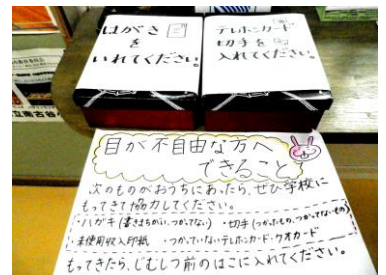 はがき
を
いれてください。
テレホンカード
切手を
入れてください。
目が不自由な方へ
できること
次のものがおうちにあったら、ぜひ学校に
もってきて協力してください。
・ハガキ(書きまちがい、つかってない) ・切手(つかったもの、つかってないもの)
・未使用収入印紙 ・つかっていないテレホンカード・クオカード
もってきたら、じむしつ前のはこに入れてください。